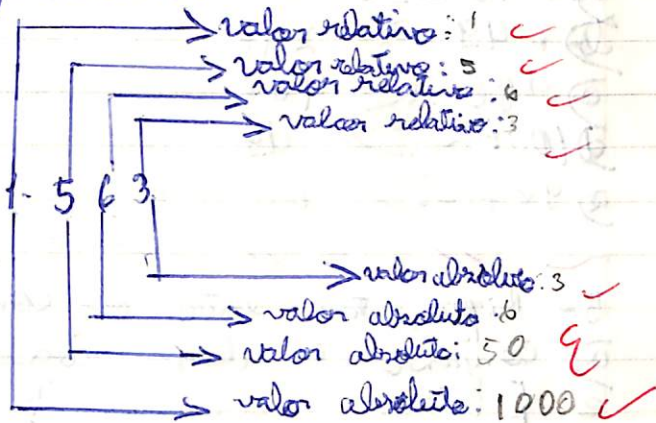 valor relativo: 1
valor relativo: 5
valor relativo: 6
valor relativo: 3
1 5 6 3
valor absoluto: 3
valor absoluto: 6
valor absoluto: 50
valor absoluto: 1000